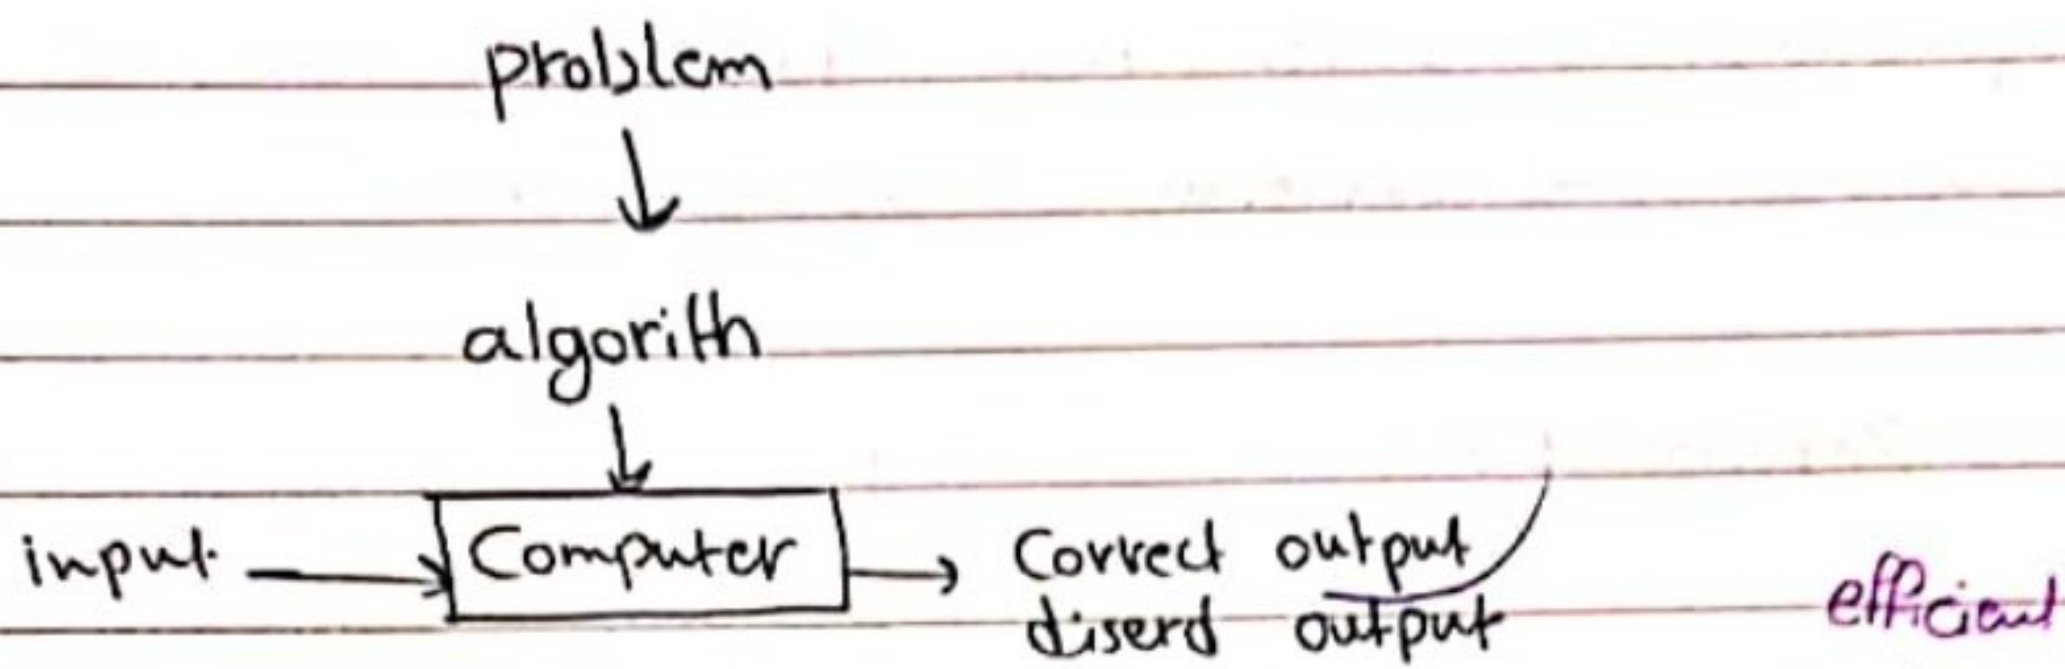 problem
algorith
input Computer Correct output
diserd output efficient